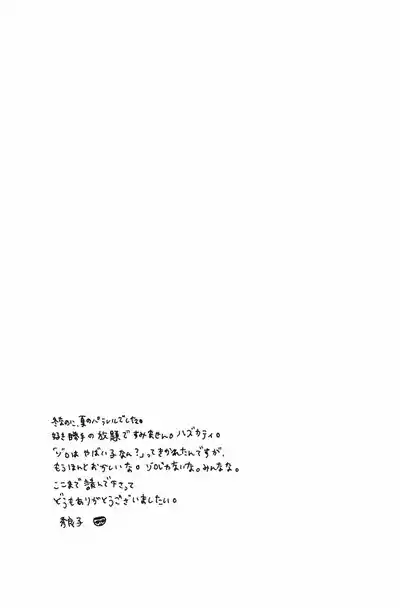 冬なのに、夏のパラレルでした。
好き勝手の放題ですみません。ハズカティ。
「ゾロは やばい子なん?」ってきかれたんですが、
もうほんとおかしいな。ゾロじゃないな。みんなな。
ここまで読んで下さって
どうもありがとうございましたい。
秀良子